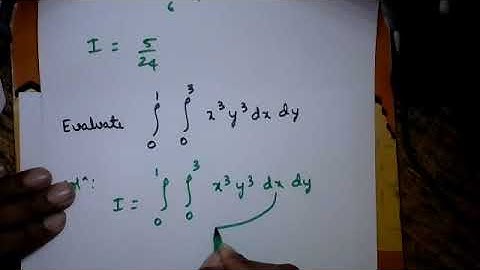 6
I = 5/24
Evaluate ∫₀¹ ∫₀³ x³y³ dx dy
I = ∫₀¹ ∫₀³ x³y³ dx dy